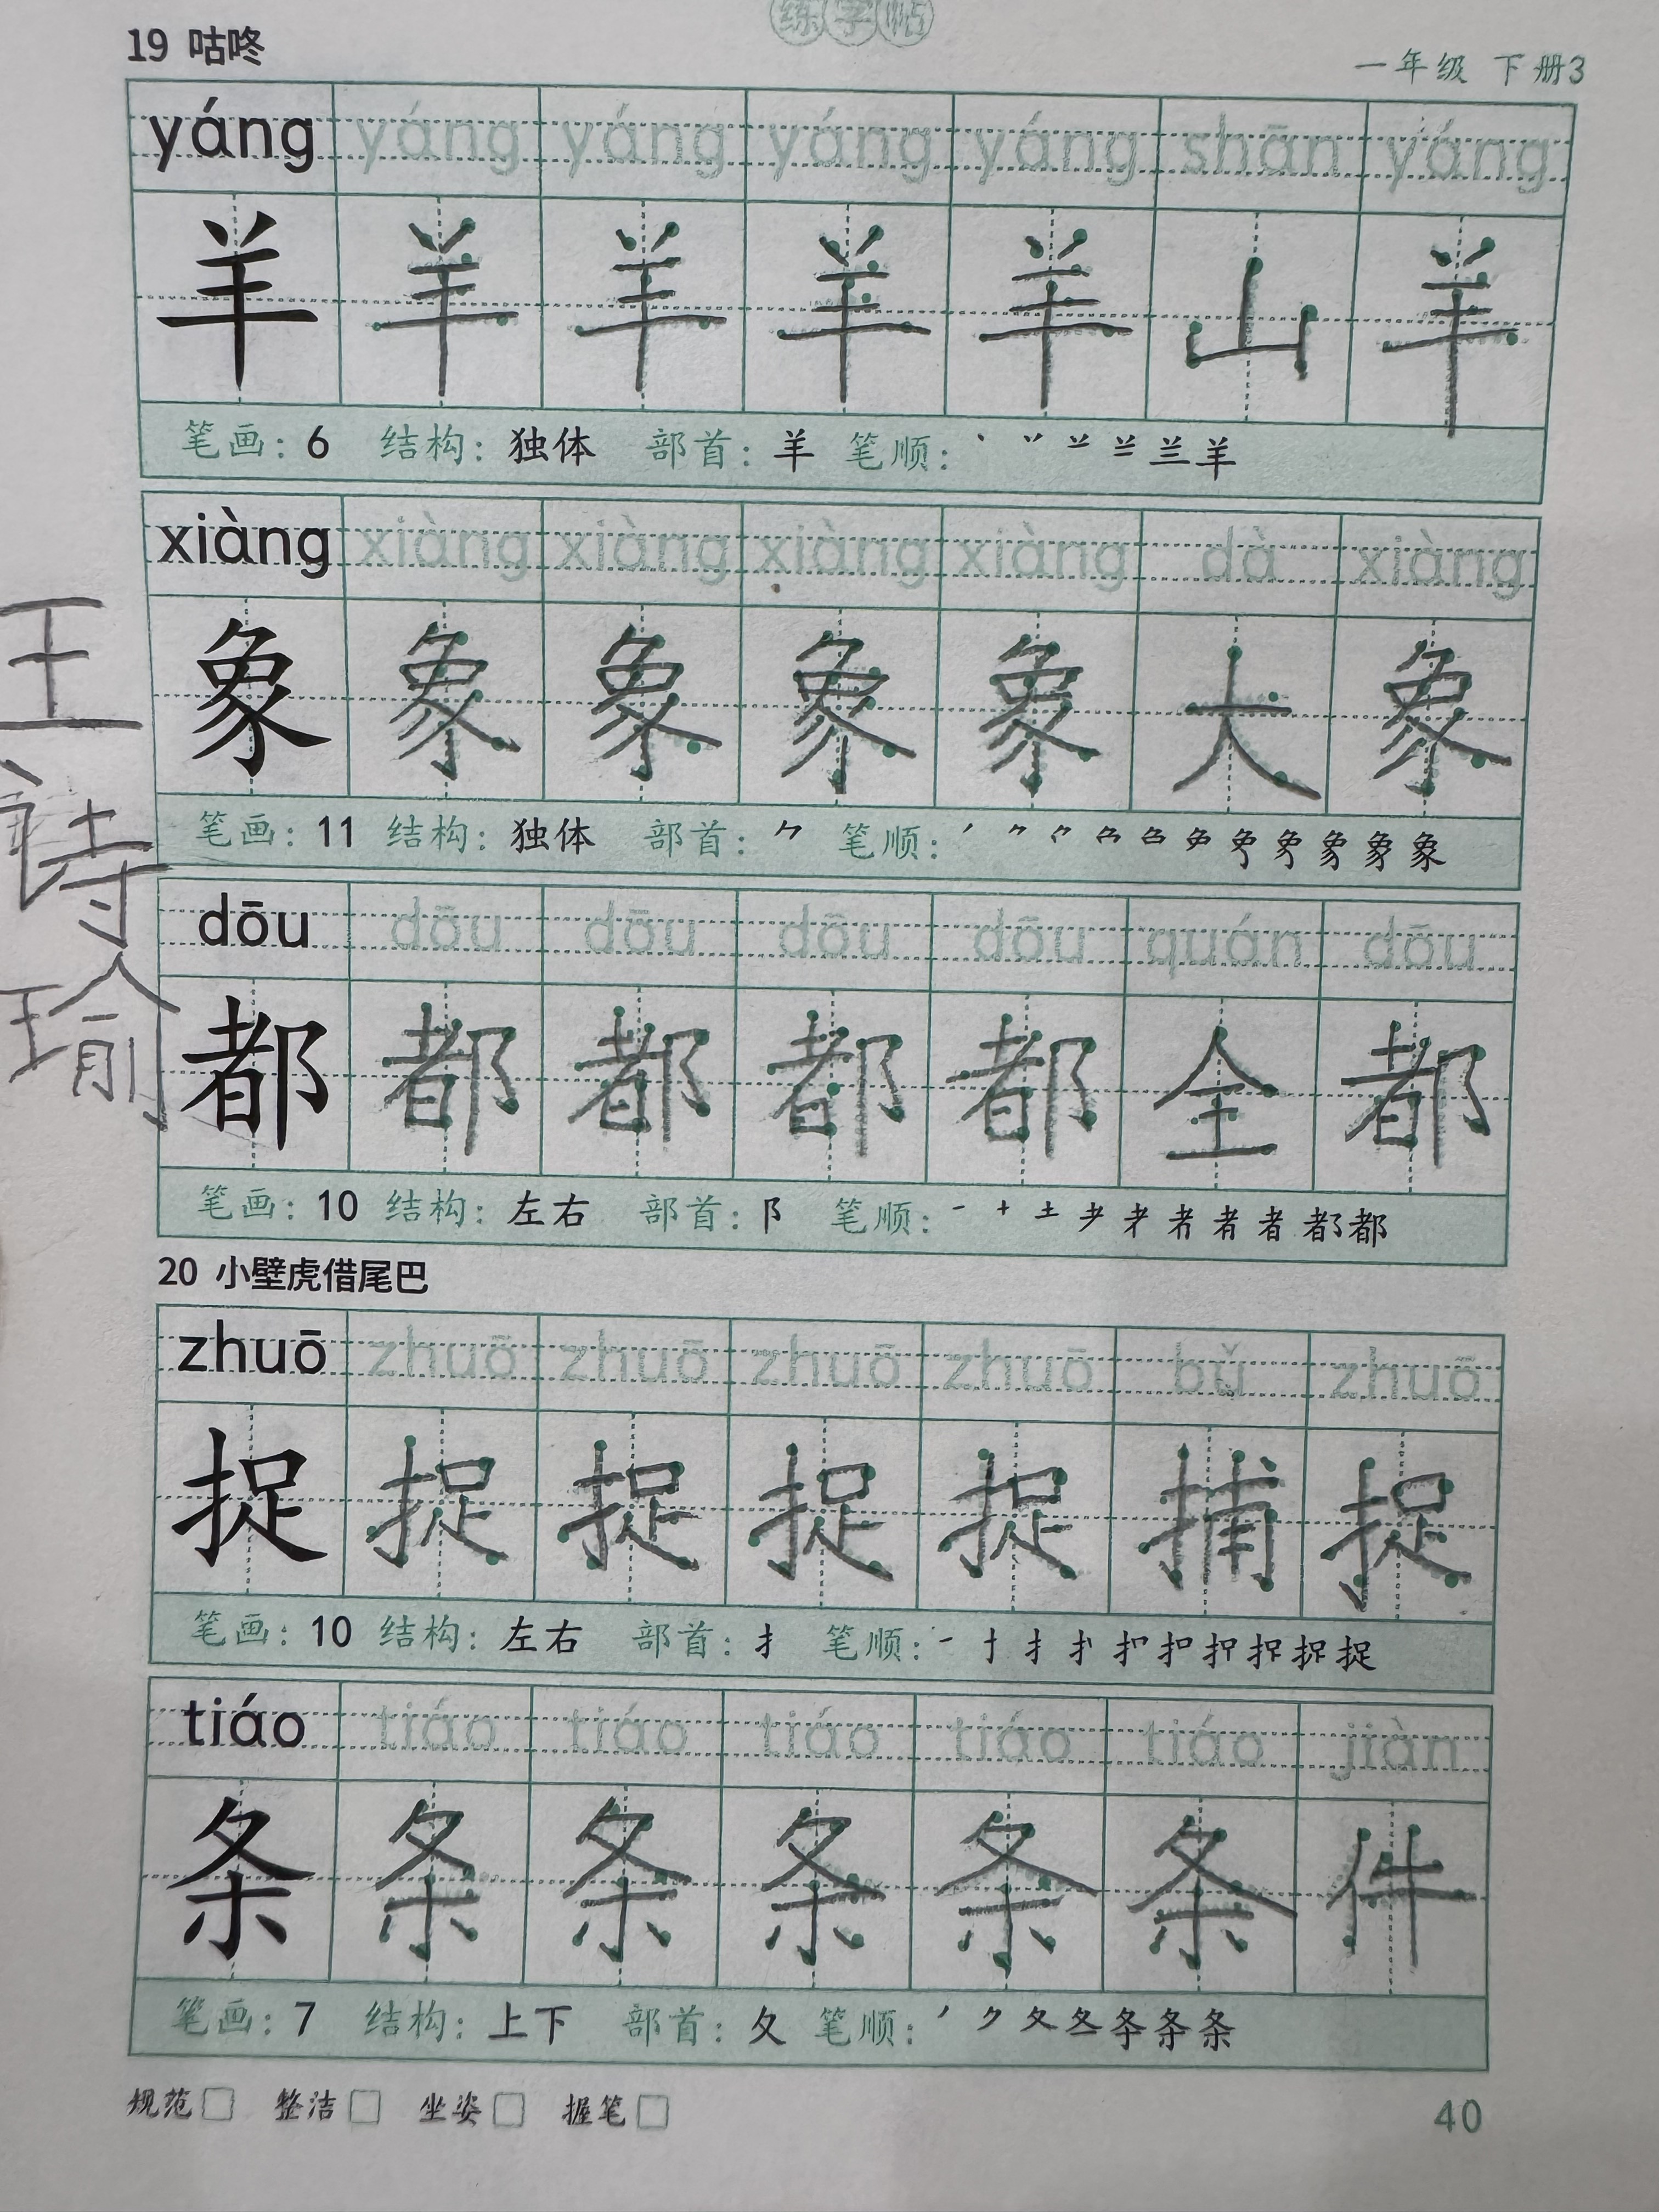 练字帖
19 咕咚
一年级 下册3
yáng yáng yáng yáng yáng shān yáng
羊 羊 羊 羊 羊 山 羊
笔画：6 结构：独体 部首：羊 笔顺：
xiàng xiàng xiàng xiàng xiàng dà xiàng
象 象 象 象 象 大 象
笔画：11 结构：独体 部首：⺈ 笔顺：
dōu dōu dōu dōu dōu quán dōu
都 都 都 都 都 全 都
笔画：10 结构：左右 部首：阝 笔顺：
王
诗
瑜
20 小壁虎借尾巴
zhuō zhuō zhuō zhuō zhuō bǔ zhuō
捉 捉 捉 捉 捉 捕 捉
笔画：10 结构：左右 部首：扌 笔顺：
tiáo tiáo tiáo tiáo tiáo tiáo jiàn
条 条 条 条 条 条 件
笔画：7 结构：上下 部首：夂 笔顺：
规范□ 整洁□ 坐姿□ 握笔□
40